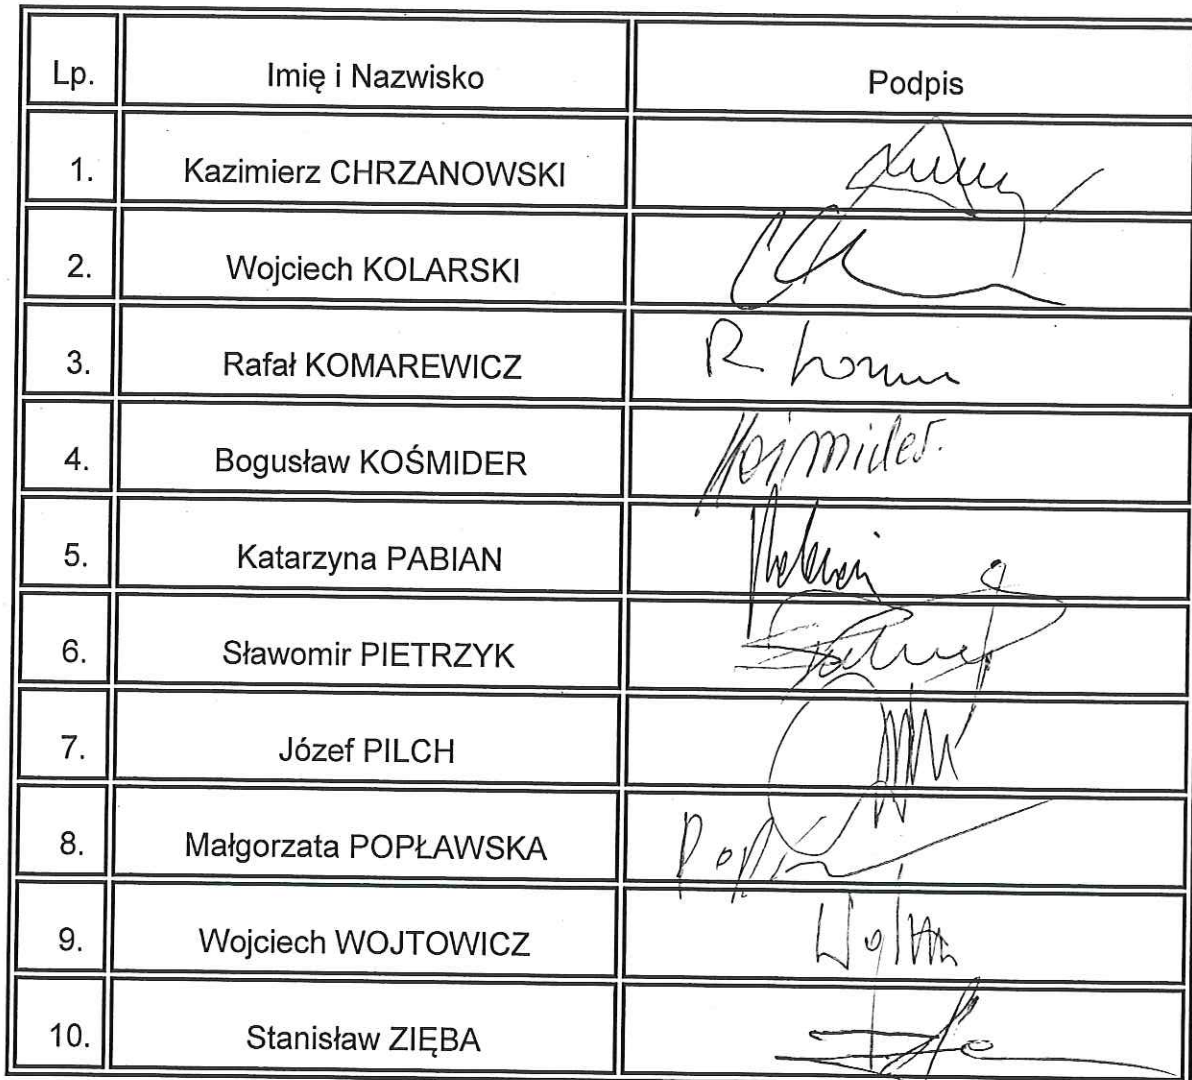 Lp. Imię i Nazwisko Podpis
1. Kazimierz CHRZANOWSKI
2. Wojciech KOLARSKI
3. Rafał KOMAREWICZ R
4. Bogusław KOŚMIDER Kośmider
5. Katarzyna PABIAN
6. Sławomir PIETRZYK
7. Józef PILCH
8. Małgorzata POPŁAWSKA
9. Wojciech WOJTOWICZ
10. Stanisław ZIĘBA